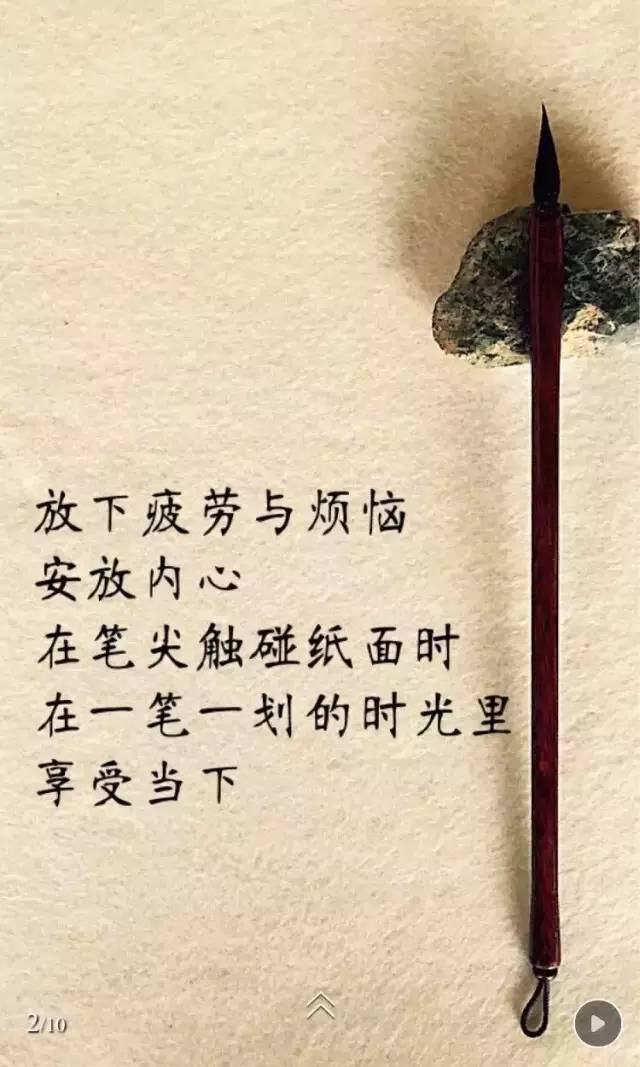 放下疲劳与烦恼
安放内心
在笔尖触碰纸面时
在一笔一划的时光里
享受当下
2/10